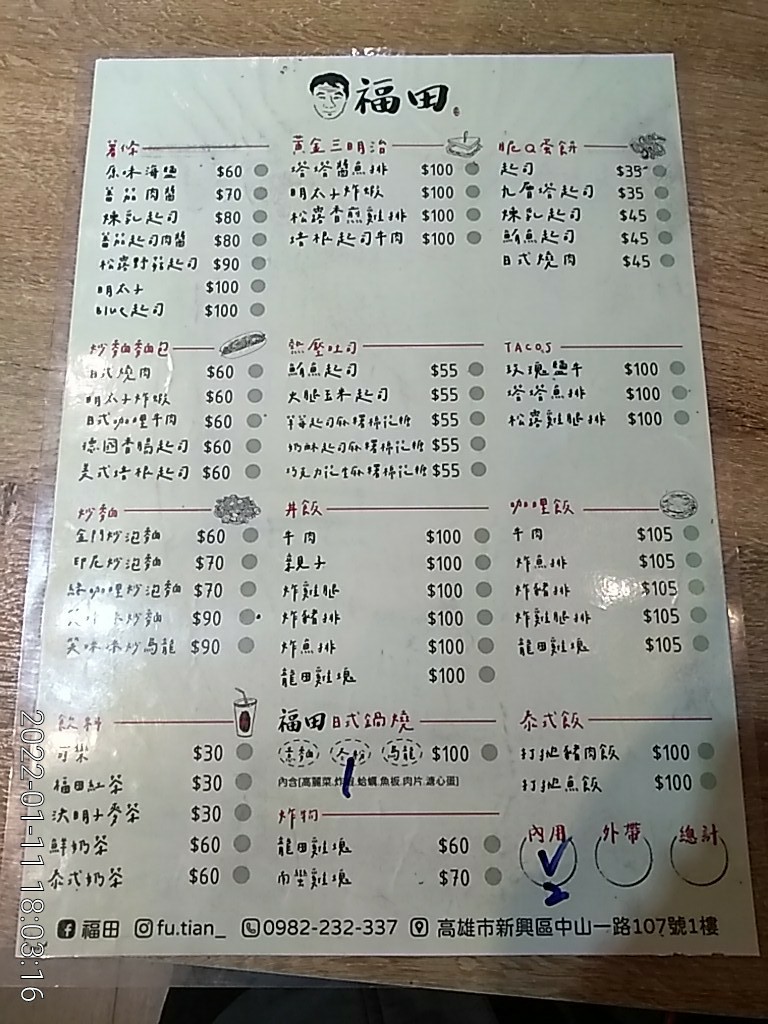 福田
薯條
原味海鹽 $60
蕃茄肉醬 $70
煉乳起司 $80
蕃茄起司肉醬 $80
松露野菇起司 $90
明太子 $100
BLUE起司 $100
黃金三明治
塔塔醬魚排 $100
明太子炸蝦 $100
松露香煎雞排 $100
培根起司牛肉 $100
脆Q蛋餅
起司 $35
九層塔起司 $35
煉乳起司 $45
鮪魚起司 $45
日式燒肉 $45
炒麵麵包
日式燒肉 $60
明太子炸蝦 $60
日式咖哩牛肉 $60
德國香腸起司 $60
美式培根起司 $60
熱壓吐司
鮪魚起司 $55
火腿玉米起司 $55
草莓起司麻糬棉花糖 $55
奶酥起司麻糬棉花糖 $55
巧克力花生麻糬棉花糖 $55
TACOS
玫瑰鹽牛 $100
塔塔魚排 $100
松露雞腿排 $100
炒麵
金門炒泡麵 $60
印尼炒泡麵 $70
綠咖哩炒泡麵 $70
炒麵 $90
炒烏龍 $90
丼飯
牛肉 $100
親子 $100
炸雞腿 $100
炸豬排 $100
炸魚排 $100
龍田雞塊 $100
咖哩飯
牛肉 $105
炸魚排 $105
炸豬排 $105
炸雞腿排 $105
龍田雞塊 $105
飲料
可樂 $30
福田紅茶 $30
決明子麥茶 $30
鮮奶茶 $60
泰式奶茶 $60
福田日式鍋燒
意麵 冬粉 烏龍 $100
內含[高麗菜.炸蝦.蛤蠣.魚板.肉片.溏心蛋]
炸物
龍田雞塊 $60
南蠻雞塊 $70
泰式飯
打拋豬肉飯 $100
打拋魚飯 $100
內用 外帶 總計
2
福田 fu.tian_ 0982-232-337 高雄市新興區中山一路107號1樓
2022-01-11 18:03:16